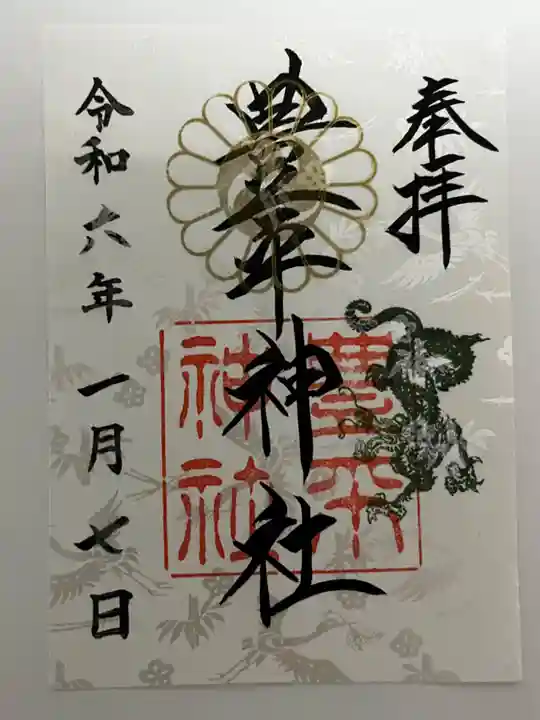 奉拝
豊平神社
豊平
神社
令和六年 一月七日